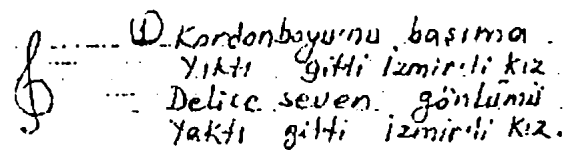 ① Kordonboyu'nu başıma
Yıktı gitti İzmir'li kız
Delice seven gönlümü
Yaktı gitti İzmir'li kız.